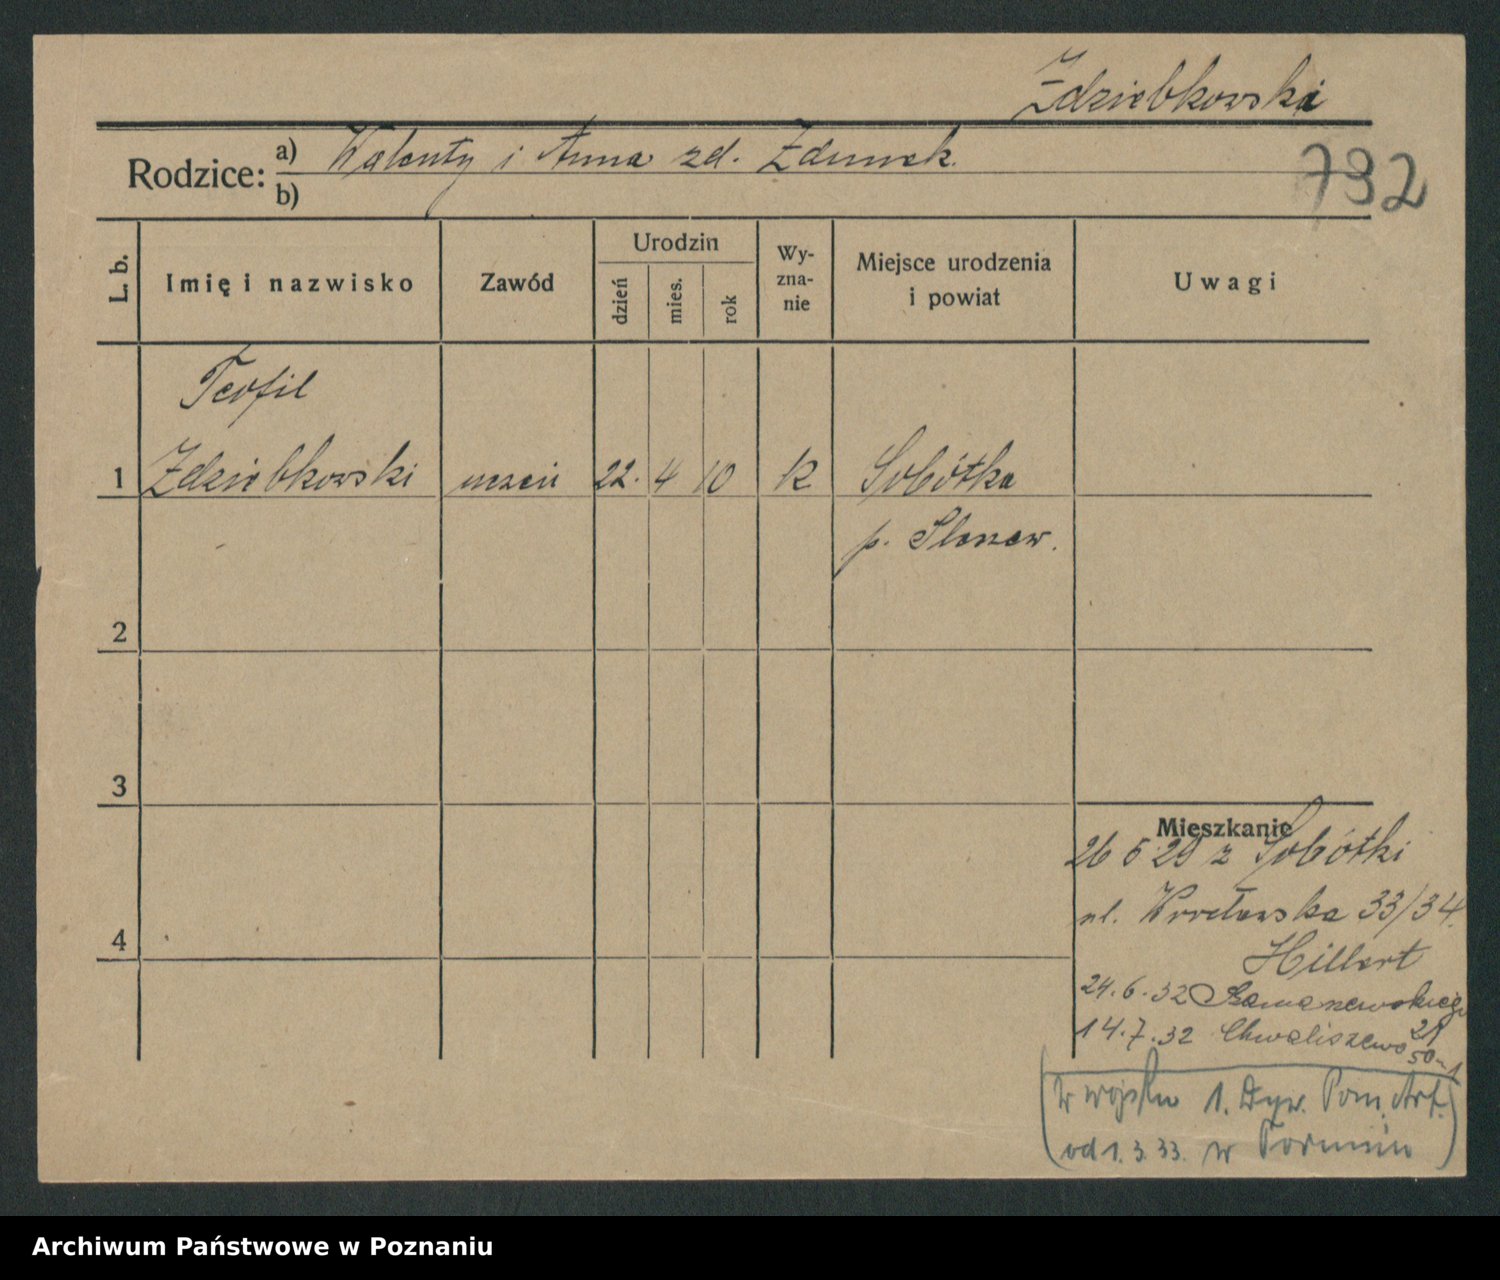 Zdziebkowski
Rodzice: a) Walenty i Anna zd. Zdunek.
792
b)
L. b. Imię i nazwisko Zawód Urodzin dzień mies. rok Wy-zna-nie Miejsce urodzenia i powiat Uwagi
Teofil
1 Zdziebkowski uczeń 22. 4 10 k Sobótka
p.
2
3
Mieszkanie
26 5 29 z Sobótki
ul. Wrocławska 33/34.
4
Hillert
24.6.32 21
14.7.32 Chwaliszewo 50
W wojsku 1. Dyw. Pom. Art.
od 1.3.33. w Toruniu
Archiwum Państwowe w Poznaniu